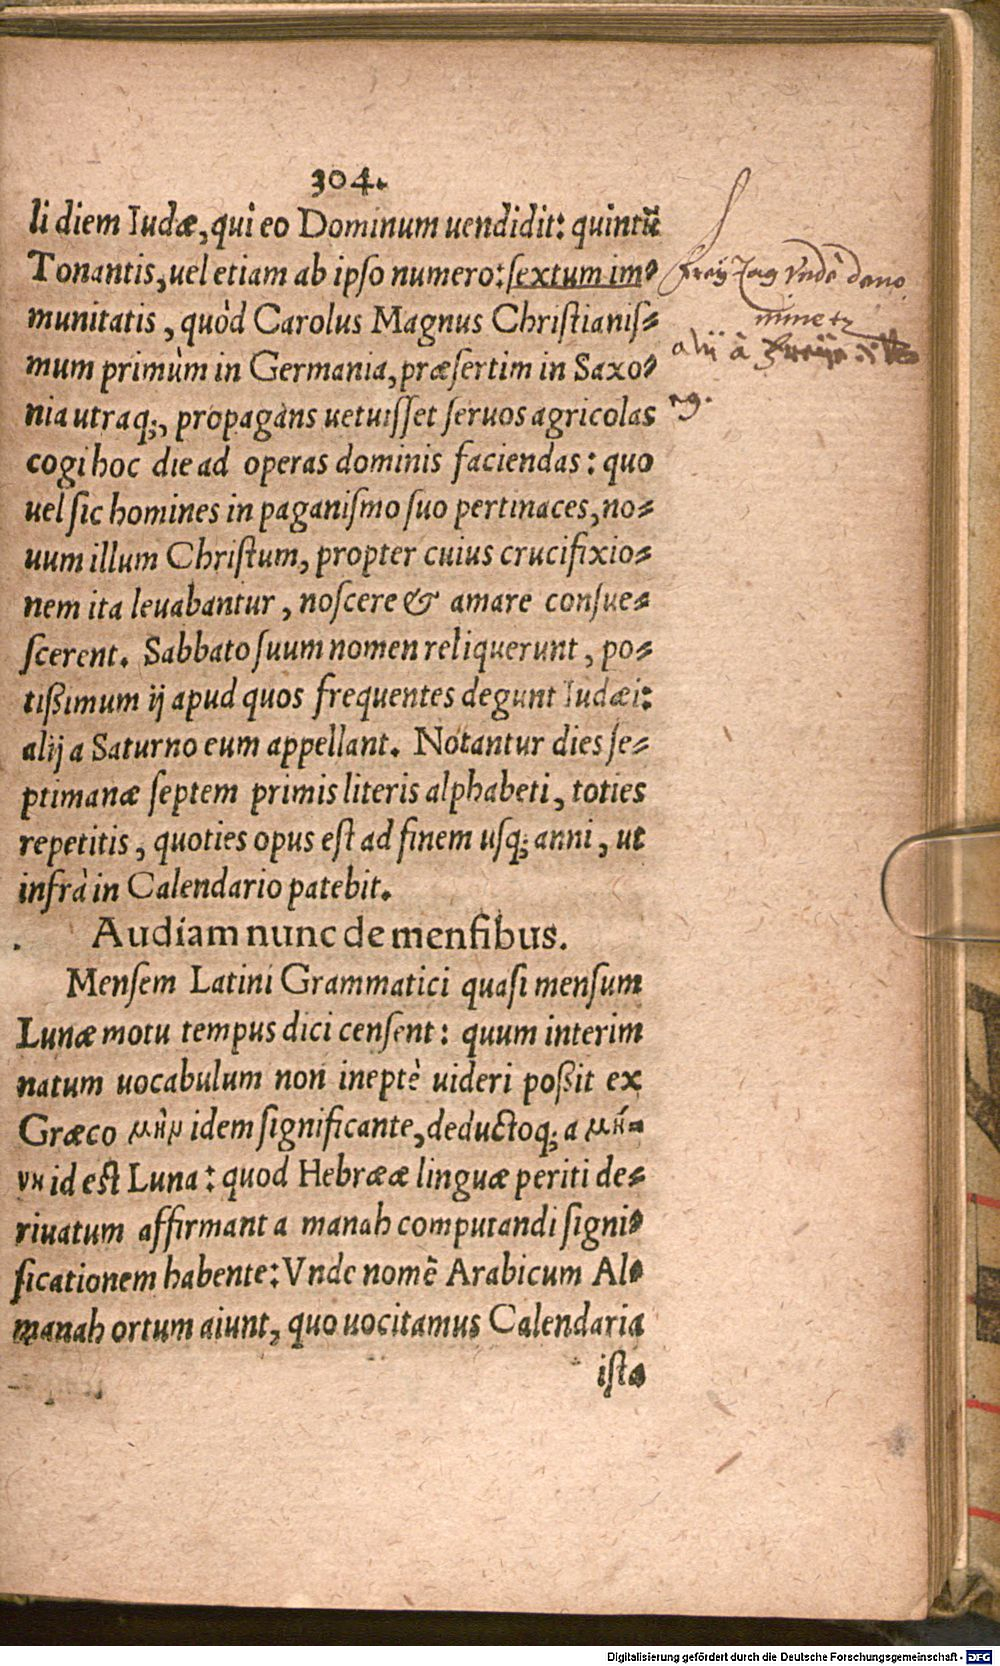 304.
li diem Iudæ, qui eo Dominum uendidit: quintũ
Tonantis, uel etiam ab ipso numero: sextum im-
munitatis, quòd Carolus Magnus Christianis-
mum primùm in Germania, præsertim in Saxo-
nia utraq;, propagans uetuisset seruos agricolas
cogi hoc die ad operas dominis faciendas: quo
uel sic homines in paganismo suo pertinaces, no-
uum illum Christum, propter cuius crucifixio-
nem ita leuabantur, noscere & amare consue-
scerent. Sabbato suum nomen reliquerunt, po-
tißimum ij apud quos frequentes degunt Iudæi:
alij a Saturno eum appellant. Notantur dies se-
ptimanæ septem primis literis alphabeti, toties
repetitis, quoties opus est ad finem usq; anni, ut
infrà in Calendario patebit.
Audiam nunc de mensibus.
Mensem Latini Grammatici quasi mensum
Lunæ motu tempus dici censent: quum interim
natum uocabulum non ineptè uideri poßit ex
Græco μὴν idem significante, deductoq; a μή-
νη id est Luna: quod Hebrææ linguæ periti de-
riuatum affirmant a manah computandi signi-
ficationem habente: Vnde nomẽ Arabicum Al-
manah ortum aiunt, quo uocitamus Calendaria
ista
Freÿ Tag Vndè deno
minetr
alij à
Digitalisierung gefördert durch die Deutsche Forschungsgemeinschaft - DFG